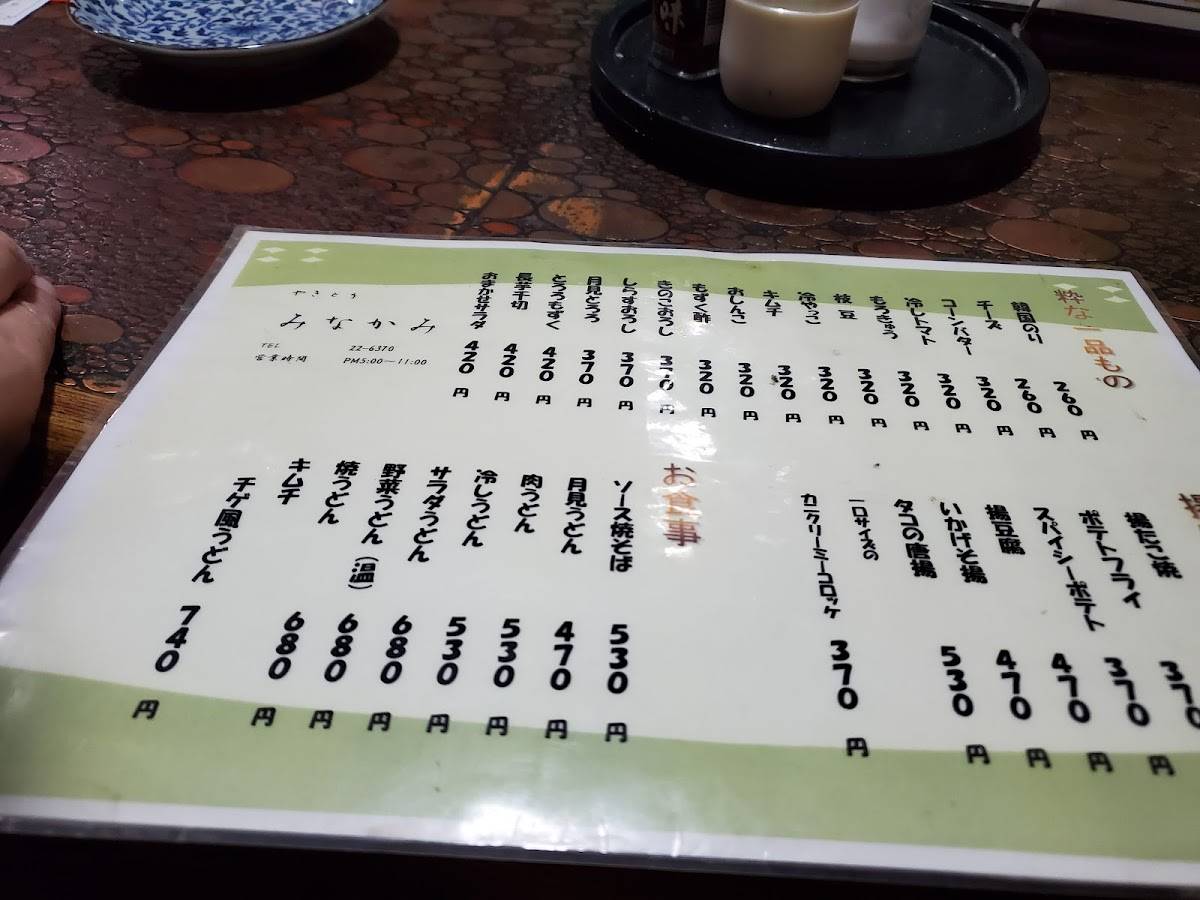 粋な一品もの
韓国のり 260円
チーズ 260円
コーンバター 320円
冷しトマト 320円
もろきゅう 320円
枝豆 320円
冷やっこ 320円
キムチ 320円
おしんこ 320円
もずく酢 320円
きのこおろし 円
しらすおろし 370円
月見とろろ 370円
とろろもずく 420円
長芋千切 420円
おまかせサラダ 420円
やきとり
みなかみ
TEL 22-6370
営業時間 PM5:00〜11:00
揚たこ焼
ポテトフライ 370円
スパイシーポテト 370円
揚豆腐 470円
いかげそ揚 470円
タコの唐揚 530円
一口サイズの
カニクリーミーコロッケ 370円
お食事
ソース焼そば 530円
月見うどん 470円
肉うどん 530円
冷しうどん 530円
サラダうどん 680円
野菜うどん（温） 680円
焼うどん 680円
キムチ
チゲ風うどん 740円
味